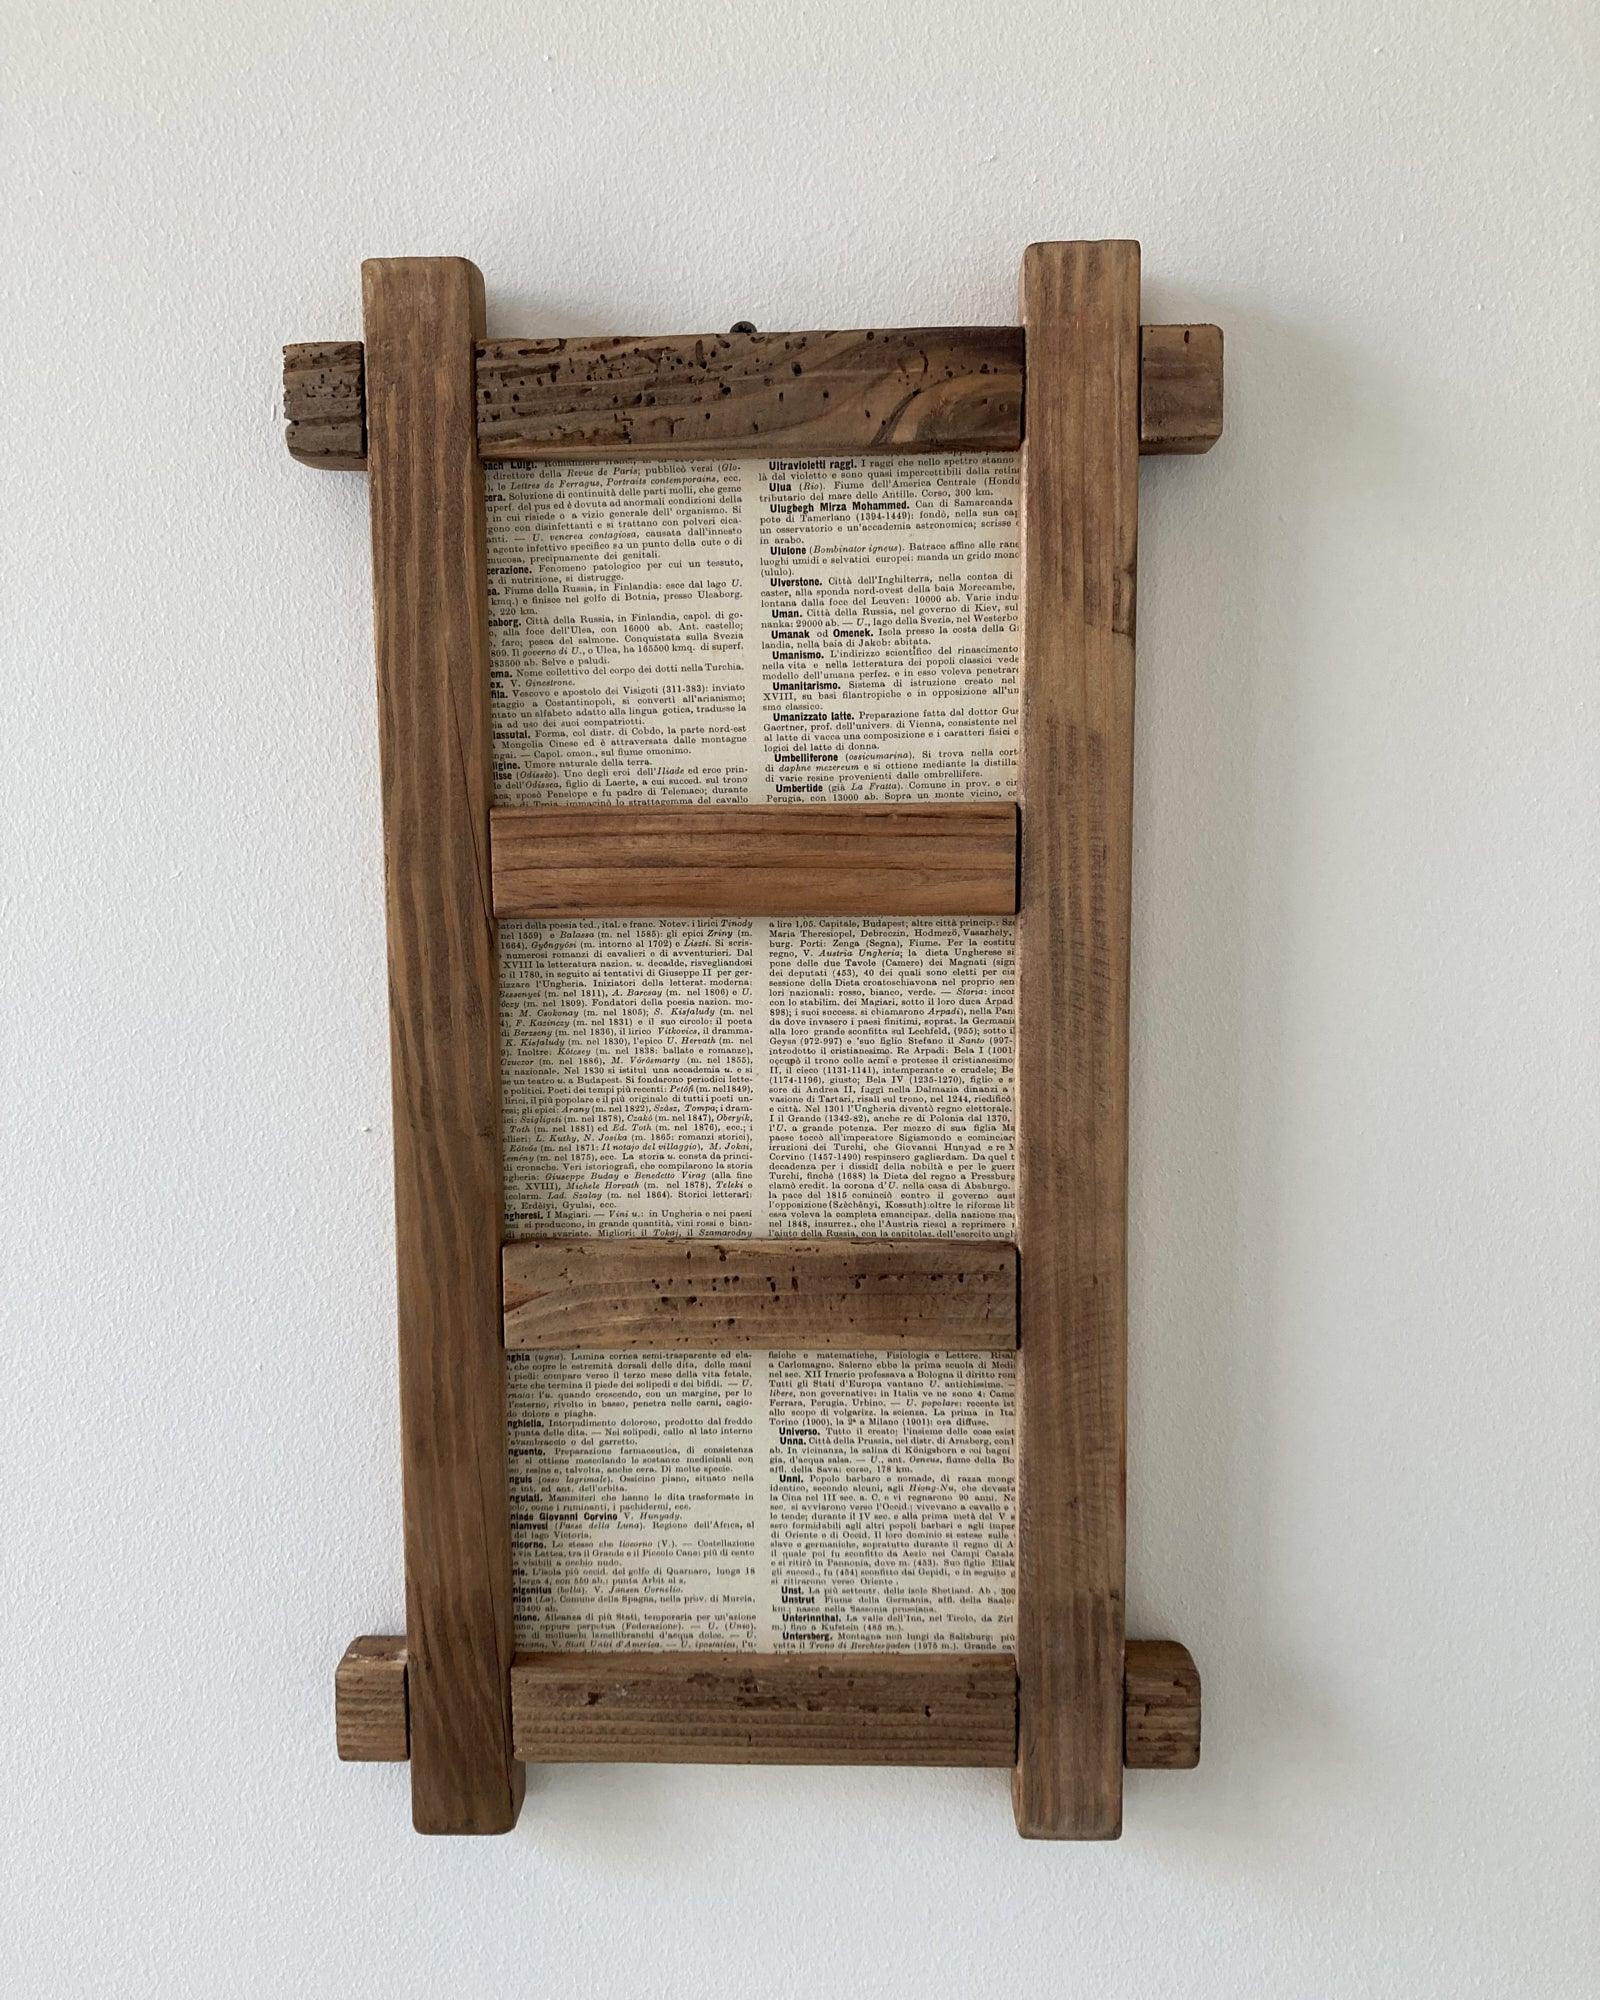 bach Luigi. Romanziere
: direttore della Revue de Paris; pubblicò versi (Glo-
), le Lettres de Ferragus, Portraits contemporains, ecc.
cera. Soluzione di continuità delle parti molli, che geme
uperf. del pus ed è dovuta ad anormali condizioni della
in cui risiede o a vizio generale dell' organismo. Si
gono con disinfettanti e si trattano con polveri cica-
anti. — U. venerea contagiosa, causata dall'innesto
agente infettivo specifico su un punto della cute o di
mucosa, precipuamente dei genitali.
cerazione. Fenomeno patologico per cui un tessuto,
a di nutrizione, si distrugge.
ea. Fiume della Russia, in Finlandia: esce dal lago U.
kmq.) e finisce nel golfo di Botnia, presso Uleaborg.
, 220 km.
eaborg. Città della Russia, in Finlandia, capol. di go-
o, alla foce dell'Ulea, con 16000 ab. Ant. castello;
, faro; pesca del salmone. Conquistata sulla Svezia
809. Il governo di U., o Ulea, ha 165500 kmq. di superf.
283500 ab. Selve e paludi.
ema. Nome collettivo del corpo dei dotti nella Turchia.
ex. V. Ginestrone.
fila. Vescovo e apostolo dei Visigoti (311-383): inviato
staggio a Costantinopoli, si convertì all'arianismo;
ntato un alfabeto adatto alla lingua gotica, tradusse la
ia ad uso dei suoi compatriotti.
lassutai. Forma, col distr. di Cobdo, la parte nord-est
Mongolia Cinese ed è attraversata dalle montagne
ngai. — Capol. omon., sul fiume omonimo.
ligine. Umore naturale della terra.
lisse (Odissèo). Uno degli eroi dell'Iliade ed eroe prin-
le dell'Odissea, figlio di Laerte, a cui succed. sul trono
aca; sposò Penelope e fu padre di Telemaco; durante
dio di Troia, immaginò lo strattagemma del cavallo
Ultravioletti raggi. I raggi che nello spettro stanno
là del violetto e sono quasi impercettibili dalla retin
Ulua (Rio). Fiume dell'America Centrale (Hondu
tributario del mare delle Antille. Corso, 300 km.
Ulugbegh Mirza Mohammed. Can di Samarcanda
pote di Tamerlano (1394-1449): fondò, nella sua cap
un osservatorio e un'accademia astronomica; scrisse
in arabo.
Ululone (Bombinator igneus). Batrace affine alle rane
luoghi umidi e selvatici europei: manda un grido mono
(ululo).
Ulverstone. Città dell'Inghilterra, nella contea di
caster, alla sponda nord-ovest della baia Morecambe,
lontana dalla foce del Leuven: 10000 ab. Varie indu
Uman. Città della Russia, nel governo di Kiev, sul
nanka: 29000 ab. — U., lago della Svezia, nel Westerbo
Umanak od Omenek. Isola presso la costa della G
landia, nella baia di Jakob: abitata.
Umanismo. L'indirizzo scientifico del rinascimento
nella vita e nella letteratura dei popoli classici vede
modello dell'umana perfez. e in esso voleva penetrare
Umanitarismo. Sistema di istruzione creato nel
XVIII, su basi filantropiche e in opposizione all'um
smo classico.
Umanizzato latte. Preparazione fatta dal dottor Gu
Gaertner, prof. dell'univers. di Vienna, consistente nel
al latte di vacca una composizione e i caratteri fisici e
logici del latte di donna.
Umbelliferone (ossicumarina). Si trova nella cort
di daphne mezereum e si ottiene mediante la distilla
di varie resine provenienti dalle ombrellifere.
Umbertide (già La Fratta). Comune in prov. e cir
Perugia, con 13000 ab. Sopra un monte vicino, ce
tatori della poesia ted., ital. e franc. Notev. i lirici Tinody
nel 1559) e Balassa (m. nel 1585): gli epici Zriny (m.
1664), Gyöngyösi (m. intorno al 1702) e Liszti. Si scris-
numerosi romanzi di cavalieri e di avventurieri. Dal
XVIII la letteratura nazion. u. decadde, risvegliandosi
o il 1780, in seguito ai tentativi di Giuseppe II per ger-
nizzare l'Ungheria. Iniziatori della letterat. moderna:
Bessenyei (m. nel 1811), A. Barcsay (m. nel 1806) e U.
(m. nel 1809). Fondatori della poesia nazion. mo-
na: M. Csokonay (m. nel 1805); S. Kisfaludy (m. nel
), F. Kazinczy (m. nel 1831) e il suo circolo: il poeta
di Berzseny (m. nel 1836), il lirico Vitkovics, il dramma-
K. Kisfaludy (m. nel 1830), l'epico U. Hervath (m. nel
9). Inoltre: Kölcsey (m. nel 1838: ballate e romanze),
Czuczor (m. nel 1866), M. Vörösmarty (m. nel 1855),
ta nazionale. Nel 1830 si istituì una accademia u. e si
se un teatro u. a Budapest. Si fondarono periodici lette-
e politici. Poeti dei tempi più recenti: Petöfi (m. nel 1849),
lirici, il più popolare e il più originale di tutti i poeti un-
resi; gli epici: Arany (m. nel 1822), Szász, Tompa; i dram-
ici: Szigligeti (m. nel 1878), Czakó (m. nel 1847), Obernyik,
Toth (m. nel 1881) ed Ed. Toth (m. nel 1876), ecc.; i
ellieri: L. Kuthy, N. Josika (m. 1865: romanzi storici),
Eötvös (m. nel 1871: Il notajo del villaggio), M. Jokai,
Kemény (m. nel 1875), ecc. La storia u. consta da princi-
di cronache. Veri istoriografi, che compilarono la storia
ngheria: Giuseppe Buday e Benedetto Virag (alla fine
sec. XVIII), Michele Horvath (m. nel 1878), Teleki e
icolarm. Lad. Szalay (m. nel 1864). Storici letterari:
ly, Erdélyi, Gyulai, ecc.
ngheresi. I Magiari. — Vini u.: in Ungheria e nei paesi
ssi si producono, in grande quantità, vini rossi e bian-
di specie svariate. Migliori: il Tokaj, il Szamarodny
a lire 1,05. Capitale, Budapest; altre città princip.: Sze
Maria Theresiopel, Debreczin, Hodmezö, Vasarhely,
burg. Porti: Zenga (Segna), Fiume. Per la costitu
regno, V. Austria Ungheria; la dieta Ungherese si
pone delle due Tavole (Camere) dei Magnati (sign
dei deputati (453), 40 dei quali sono eletti per cia
sessione della Dieta croatoschiavona nel proprio sen
lori nazionali: rosso, bianco, verde. — Storia: incor
con lo stabilim. dei Magiari, sotto il loro duca Arpad
898); i suoi success. si chiamarono Arpadi), nella Pan
da dove invasero i paesi finitimi, soprat. la Germani
alla loro grande sconfitta sul Lechfeld, (955); sotto il
Geysa (972-997) e 'suo figlio Stefano il Santo (997-
introdotto il cristianesimo. Re Arpadi: Bela I (1001-
occupò il trono colle armi e protesse il cristianesimo
II, il cieco (1131-1141), intemperante e crudele; Be
(1174-1196), giusto; Bela IV (1235-1270), figlio e s
sore di Andrea II, fuggì nella Dalmazia dinanzi a
vasione di Tartari, risalì sul trono, nel 1244, riedificò
e città. Nel 1301 l'Ungheria diventò regno elettorale.
I il Grande (1342-82), anche re di Polonia dal 1370,
l'U. a grande potenza. Per mezzo di sua figlia Ma
paese toccò all'imperatore Sigismondo e cominciar
irruzioni dei Turchi, che Giovanni Hunyad e re M
Corvino (1457-1490) respinsero gagliardam. Da quel t
decadenza per i dissidî della nobiltà e per le guerr
Turchi, finchè (1688) la Dieta del regno a Pressburg
clamò credit. la corona d'U. nella casa di Absburgo.
la pace del 1815 cominciò contro il governo aust
l'opposizione (Szèchényi, Kossuth): oltre le riforme lib
essa voleva la completa emancipaz. della nazione ma
nel 1848, insurrez., che l'Austria riescì a reprimere
l'aiuto della Russia, con la capitolaz. dell'esercito ungh
nghia (ugna). Lamina cornea semi-trasparente ed ela-
, che copre le estremità dorsali delle dita, delle mani
i piedi: compare verso il terzo mese della vita fetale.
arte che termina il piede dei solipedi e dei bifidi. — U.
rnaia: l'u. quando crescendo, con un margine, per lo
l'esterno, rivolto in basso, penetra nelle carni, cagio-
do dolore e piagha.
nghiella. Intorpidimento doloroso, prodotto dal freddo
punta delle dita. — Nei solipedi, callo al lato interno
'avambraccio o del garretto.
nguento. Preparazione farmaceutica, di consistenza
le: si ottiene mescolando le sostanze medicinali con
so, resine e, talvolta, anche cera. Di molte specie.
nguis (osso lagrimale). Ossicino piano, situato nella
e int. ed ant. dell'orbita.
ngulati. Mammiferi che hanno le dita trasformate in
colo, come i ruminanti, i pachidermi, ecc.
niade Giovanni Corvino V. Hunyady.
niamvesi (Paese della Luna). Regione dell'Africa, al
del lago Victoria.
nicorno. Lo stesso che liocorno (V.). — Costellazione
a via Lattea, tra il Grande e il Piccolo Cane: più di cento
e visibili a occhio nudo.
nie. L'isola più occid. del golfo di Quarnaro, lunga 18
, larga 4, con 550 ab.: punta Arbit al s.
nigenitus (bolla). V. Jansen Cornelio.
nion (La). Comune della Spagna, nella prov. di Murcia,
23400 ab.
nione. Alleanza di più Stati, temporaria per un'azione
ne, oppure perpetua (Federazione). — U. (Unio).
re di molluschi lamellibranchi d'acqua dolce. — U.
ricana, V. Stati Uniti d'America. — U. ipostatica, l'u-
fisiche e matematiche, Fisiologia e Lettere. Risal
a Carlomagno. Salerno ebbe la prima scuola di Medi
nel sec. XII Irnerio professava a Bologna il diritto rom
Tutti gli Stati d'Europa vantano U. antichissime. —
libere, non governative: in Italia ve ne sono 4: Came
Ferrara, Perugia, Urbino. — U. popolare: recente ist
allo scopo di volgarizz. la scienza. La prima in Ita
Torino (1900), la 2ª a Milano (1901): ora diffuse.
Universo. Tutto il creato; l'insieme delle cose esist
Unna. Città della Prussia, nel distr. di Arnsberg, con 1
ab. In vicinanza, la salina di Königsborn e coi bagni
gia, d'acqua salsa. — U., ant. Oeneus, fiume della Bo
affl. della Sava: corso, 178 km.
Unni. Popolo barbaro e nomade, di razza mong
identico, secondo alcuni, agli Hiong-Nu, che devasta
la Cina nel III sec. a. C. e vi regnarono 90 anni. Ne
sec. si avviarono verso l'Occid.: vivevano a cavallo e
le tende; durante il IV sec. e alla prima metà del V s
sero formidabili agli altri popoli barbari e agli imper
di Oriente e di Occid. Il loro dominio si estese sulle
slave e germaniche, sopratutto durante il regno di A
il quale poi fu sconfitto da Aezio nei Campi Catala
e si ritirò in Pannonia, dove m. (453). Suo figlio Ellak
gli succed., fu (454) sconfitto dai Gepidi, e in seguito g
si ritirarono verso Oriente.
Unst. La più settentr. delle isole Shetland. Ab. 300
Unstrut Fiume della Germania, affl. della Saale
km.; nasce nella Sassonia prussiana.
Unterinnthal. La valle dell'Inn, nel Tirolo, da Zirl
m.) fino a Kufstein (485 m.).
Untersberg. Montagna non lungi da Salisburg: più
vetta il Trono di Berchtesgaden (1975 m.). Grande ca